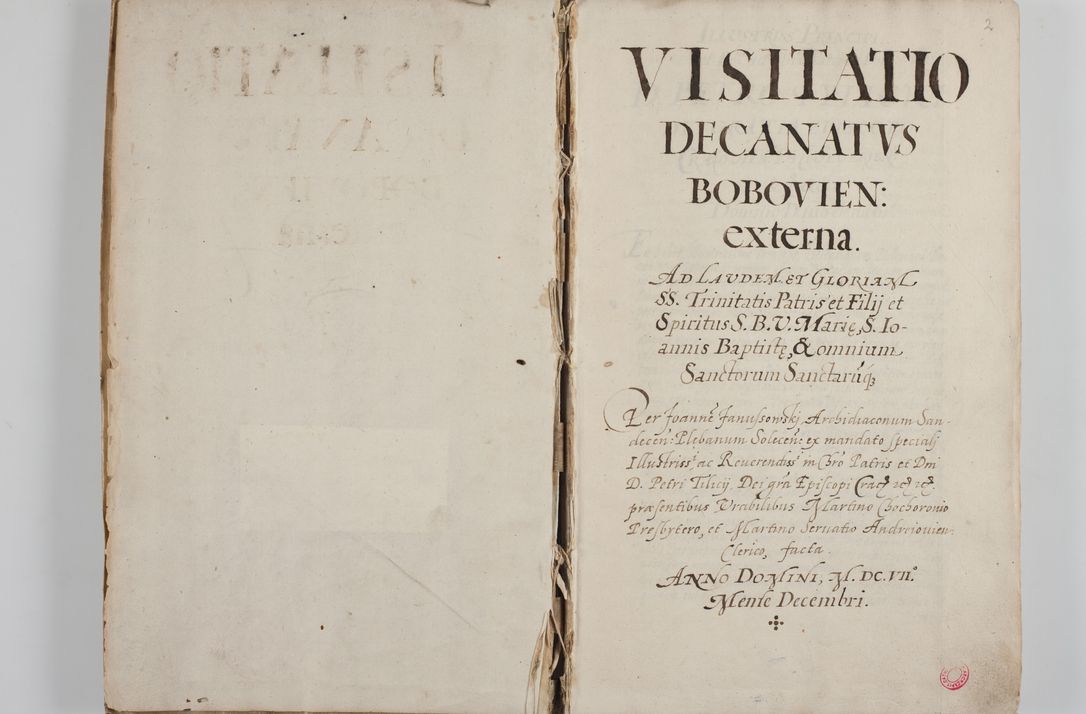 2
VISITATIO
DECANATVS
BOBOVIEN:
externa.
AD LAVDEM ET GLORIAM
SS. Trinitatis Patris et Filij et
Spiritus S. B. V. Marię, S. Io-
annis Baptistę, & omnium
Sanctorum Sanctarúq;
Per Joannē Januszowskj Archidiaconum San-
decen: Plebanum Solecen: ex mandato specialj
Illustrissi ac Reuerendissi in Chro Patris et Dni
D. Petri Tilicij Dej gra Episcopi Crac
præsentibus Vrabilibus Martino Chochoronio
Presbytero, et Martino Seruatio Andreiouien:
Clerico, facta.
ANNO DOMINI, M. DC. VII.º
Mense Decembri.